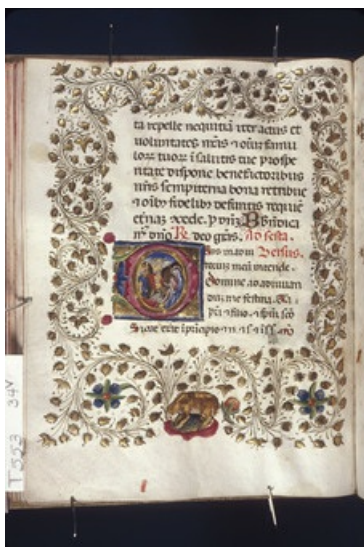 ta repelle nequitiā iter actus et
voluntates nr̄is ⁊ oīuz famu
loꝝ tuoꝝ ī salutis tue prospe
ritate dispone benefactoribus
nr̄is sempiterna bona retribue
⁊ oībꝰ fidelibꝰ defūctis requiē
et̄naȝ
dn̄o R̷. deo gr̄as. Ad sexta.
Versus.
meū intende.
Domine ad adiuuan
dūȝ me festina. Gl̄a
pr̄i ⁊ filio ⁊ spūi scō
Sicut erat ī prīcipio ⁊ n. ⁊ s. ⁊
T553 34v